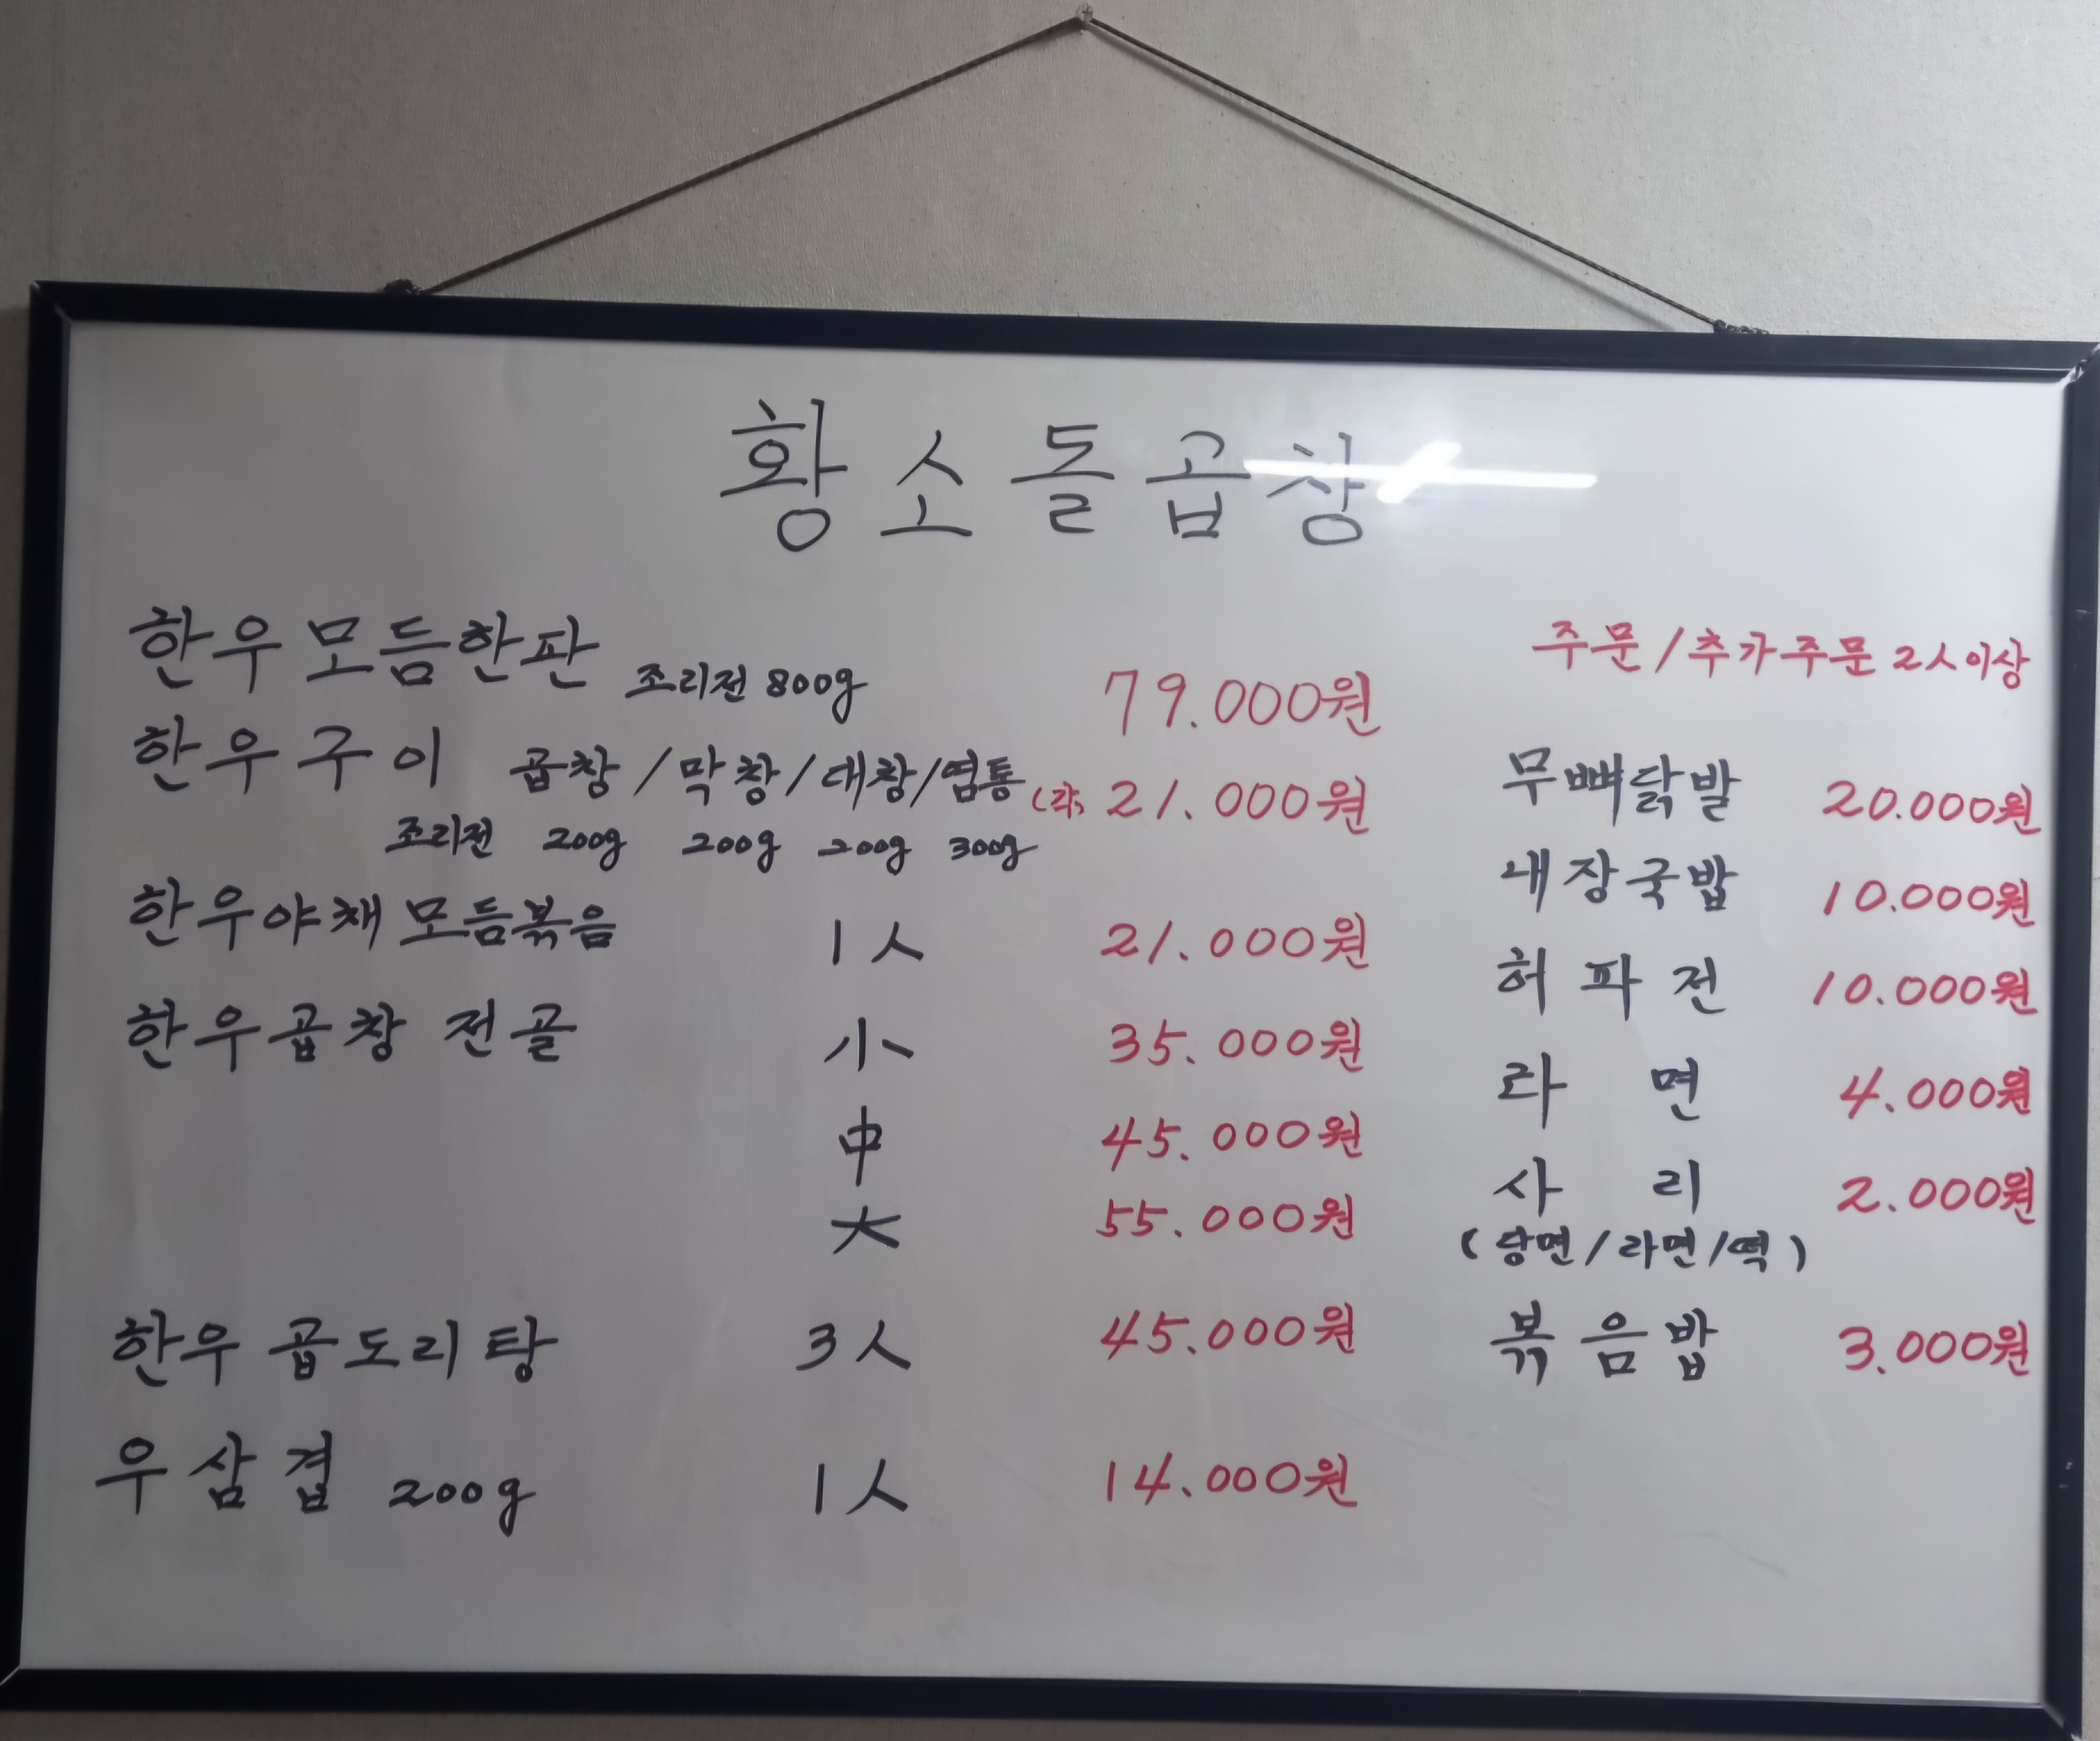 황소돌곱창
한우모듬한판 조리전 800g 79.000원
한우구이 곱창/막창/대창/염통 (각) 21.000원
조리전 200g 200g 200g 300g
한우야채모듬볶음 1人 21.000원
한우곱창 전골 小 35.000원
中 45.000원
大 55.000원
한우 곱도리탕 3人 45.000원
우삼겹 200g 1人 14.000원
주문/추가주문 2人이상
무뼈닭발 20.000원
내장국밥 10.000원
허파전 10.000원
라면 4.000원
사리 2.000원
(당면/라면/떡)
볶음밥 3.000원